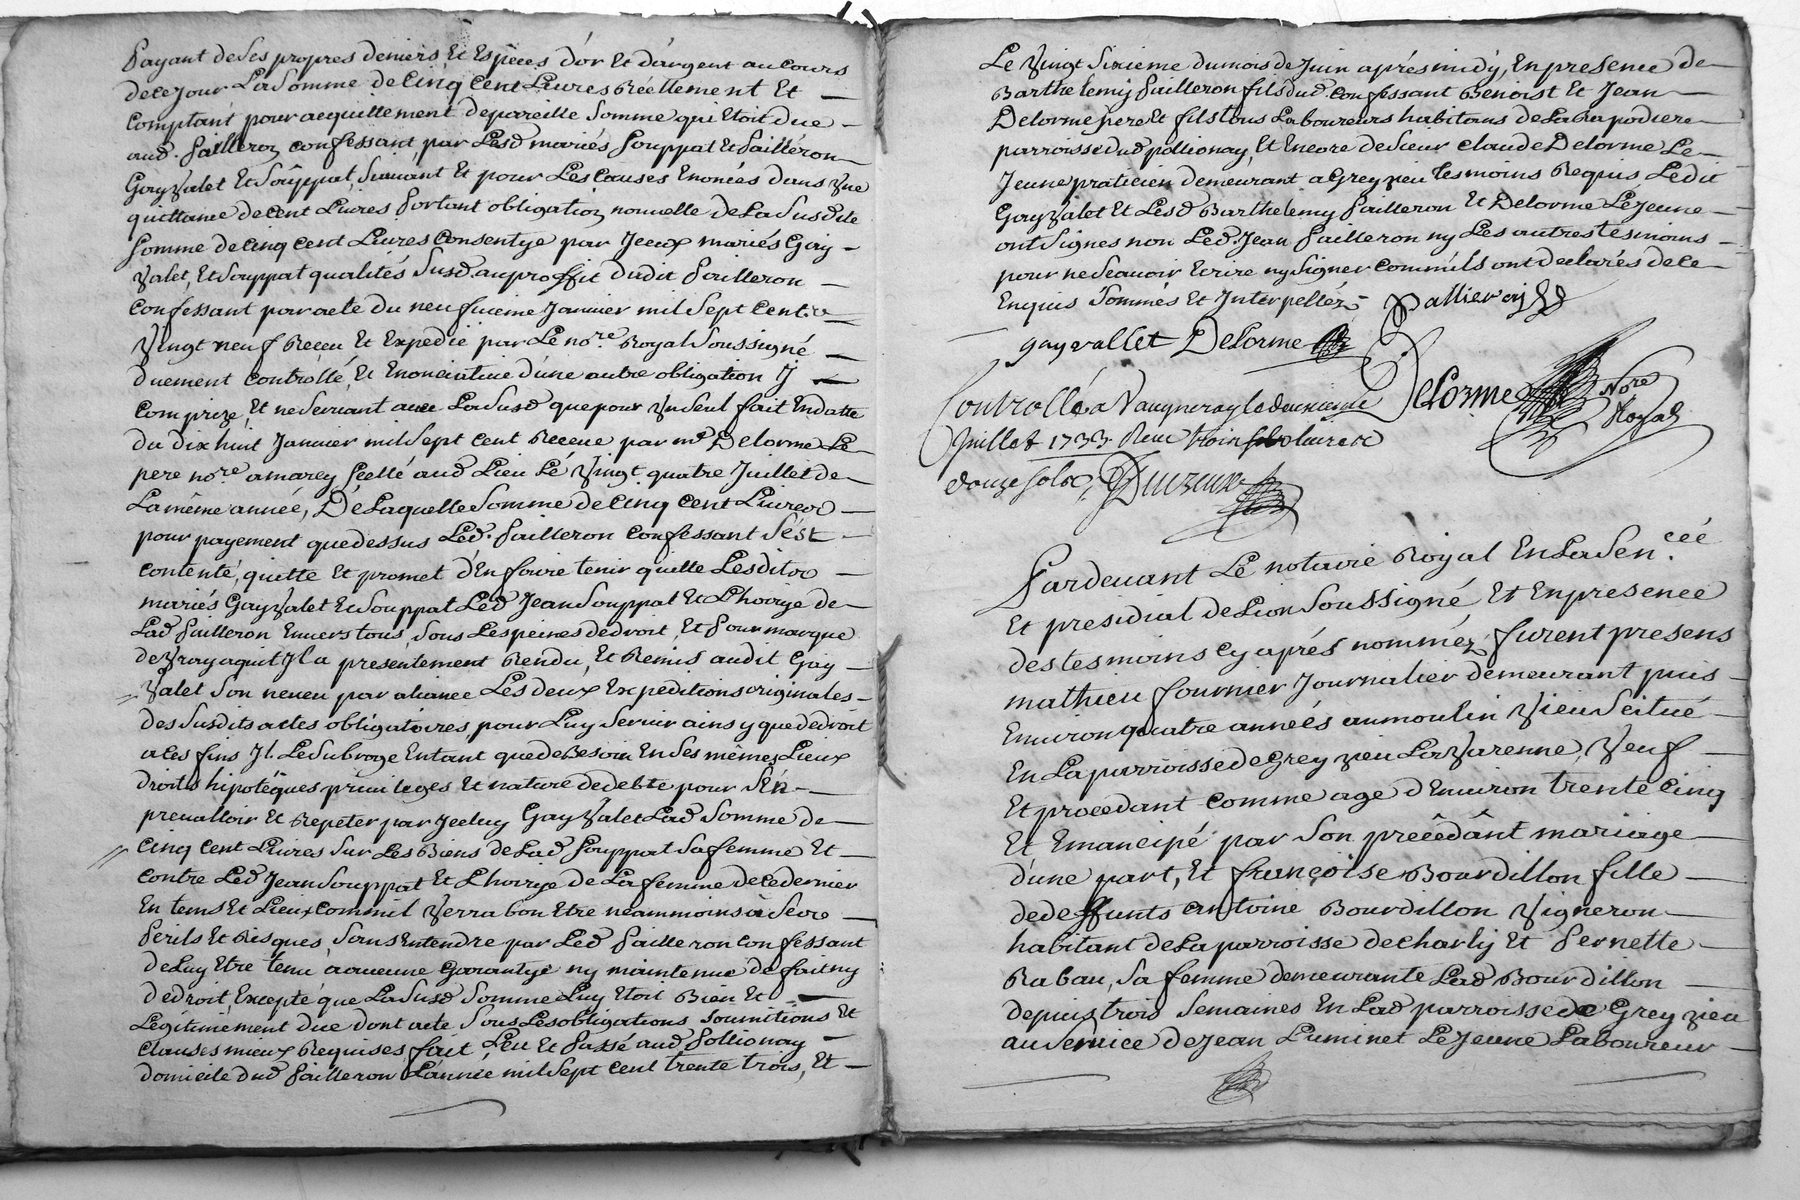 payant de ses propres deniers et Espèces d'or et d'argent au cours
de ce jour La somme de Cinq Cent Livres Réellement et
comptant pour acquittement de pareille somme qui Etoit due
aud. failleron confessant par Lesd mariés Souppat et failleron
Gayvalet et Souppat, Suivant et pour Les causes Enoncées dans une
quittance de Cent Livres portant obligation nouvelle de La Susditte
Somme de Cinq cent Livres Consentye par Iceux mariés Gay
valet, Et Souppat qualités Susd. au proffit dudit failleron
confessant par acte du neufvieme Janvier mil Sept Cent
Vingt neuf Receu Et Expedié par Le no.re Royal Soussigné
duement Controllé, Et Enonciative d'une autre obligation y
comprize, Et ne Servant avec La Susd que pour un Seul fait En datte
du dix huit Janvier mil Sept Cent Receue par me Delorme Le
pere no.re a marcy Scellé aud Lieu Le Vingt quatre Juillet de
La même année, De Laquelle Somme de Cinq Cent Livres
pour payement que dessus Led. failleron confessant S'est
contenté, quitte Et promet d'En faire tenir quitte Lesdits
mariés Gayvalet Et Souppat Led Jean Souppat Et L'hoirye de
Lad failleron Envers tous, Sous Les peines de droit, Et pour marque
de vray aquit Il a presentement Rendu, Et Remis audit Gay
valet Son neveu par aliance Les deux Expeditions originales
des Susdits actes obligatoires, pour Luy Servir ainsy que de droit
a ces fins Il Le Subroge Entant que de Besoin En Ses mêmes Lieux
droits hipotêques privileges Et nature de debte pour S'En
prevalloir Et Repeter par Iceluy Gayvalet Lad Somme de
Cinq Cent Livres Sur Les Biens de Lad Souppat Sa femme Et
contre Led Jean Souppat Et L'hoirye de La femme de ce dernier
En tems Et Lieux comm'il Verra bon Etre neammoins à Ses
Perils Et Risques, Sans Entendre par Led failleron confessant
de Luy Etre tenu à aucune Garantye ny maintenue de fait ny
de droit, Excepté que La Susd Somme Luy Etoit Bien Et
Legitimement due dont acte Sous Les obligations Soumitions Et
clauses mieux Requises, fait Leu Et Passé aud Pollionay
domicile dud failleron L'année mil Sept Cent trente trois, Et
Le Vingt Sixieme du mois de Juin aprés midy, En presence de
Barthelemy failleron fils dud confessant Benoist Et Jean
Delorme pere Et fils tous Laboureurs habitans de La Rapodiere
parroisse dud pollionay, Et Encore de Sieur Claude Delorme Le
Jeune praticien demeurant a Greyzieu tesmoins Requis Ledit
Gayvalet Et Lesd Barthelemy failleron Et Delorme Le Jeune
ont Signes non Led. Jean failleron ny Les autres tesmoins
pour ne Scavoir Ecrire ny Signer comm'ils ont declarés de ce
Enquis Sommés Et Interpellés
gayvallet Delorme
Delorme No.re
Royal
Controllé a Vaugneray le deuxieme
Juillet 1733. Receu trois livres
douze sols,
Pardevant Le notaire Royal En La Sen.cée
Et presidial de Lion Soussigné Et En presence
des tesmoins cy aprés nommés, furent presens
mathieu fournier Journalier demeurant puis
Environ quatre années au moulin Vieu Scitué
En La parroisse de Greyzieu La Varenne, Veuf
Et procedant comme agé d'Environ trente Cinq
Et Emancipé par Son précêdânt mariage
d'une part, Et françoise Bourdillon fille
de deffunts antoine Bourdillon Vigneron
habitant de La parroisse de Charly Et Pernette
Rabau, Sa femme demeurante Lad Bourdillon
depuis trois Semaines En Lad parroisse de Greyzieu
au Service de Jean Luminet Le Jeune Laboureur